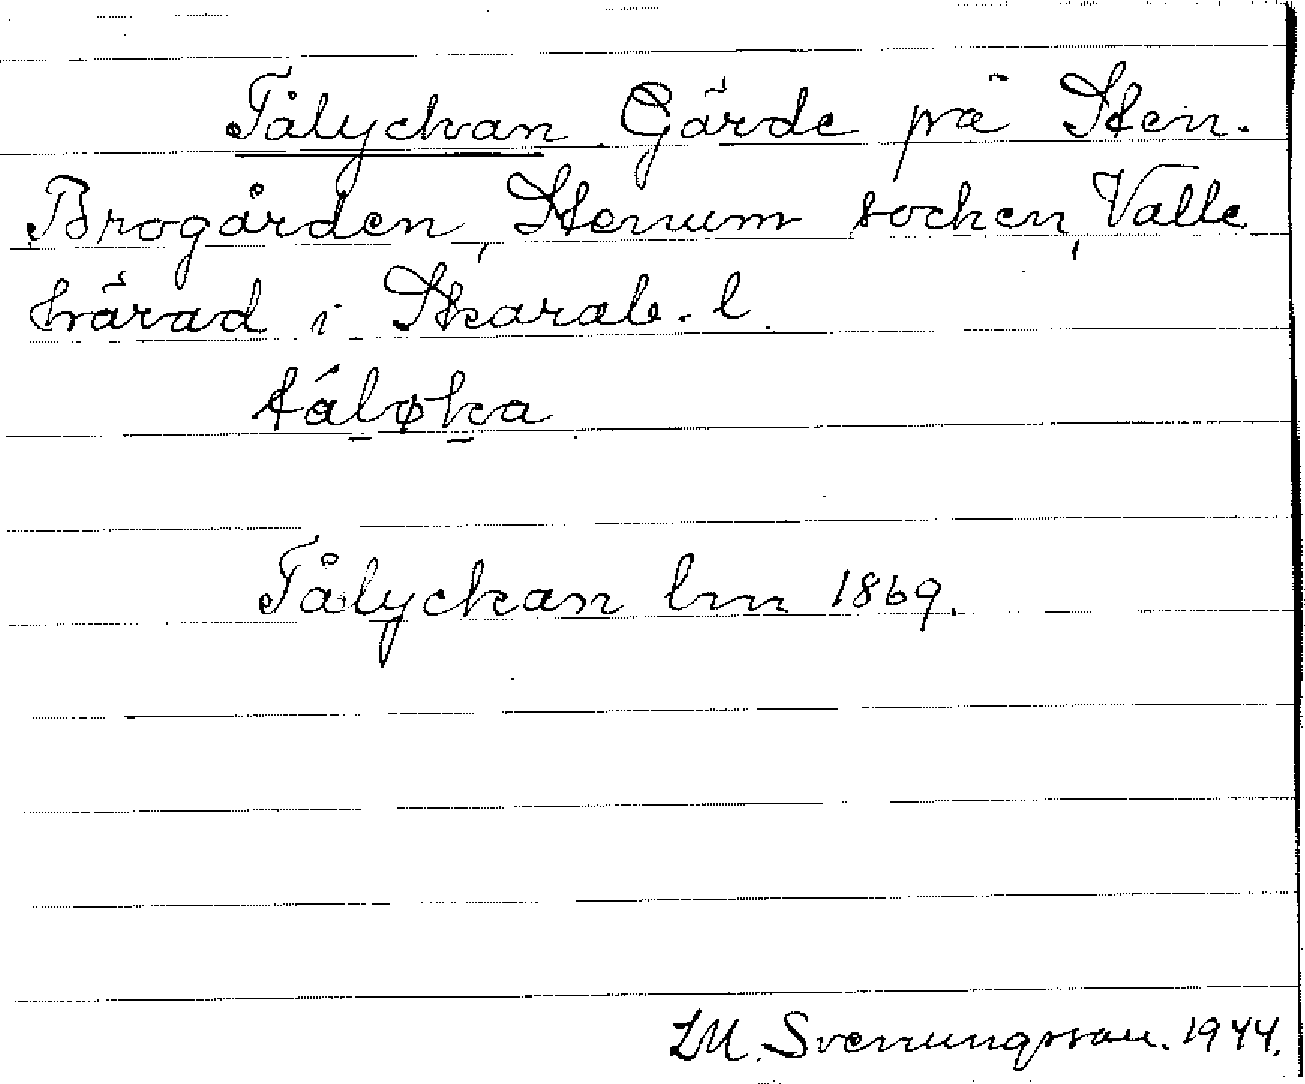 Tålyckan Gärde på Sten.
Brogården, Stenum socken, Valle
härad i Skarab. l.
tåløka
Tålyckan lm 1869.
LM. Svenungsson. 1944.